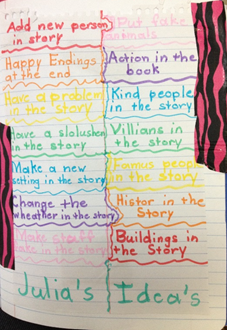 Add new person
in story
Put fake
animals
Happy Endings
at the end
Action in the
book
Have a problem
in the story
Kind people
in the story
Have a slolushen
in the story
Villians in
the story
Make a new
setting in the story
Famus people
in the story
Change the
wheather in the story
Histor in the
Story
Make stuff
fake in the story
Buildings in
the Story
Julia's Idea's